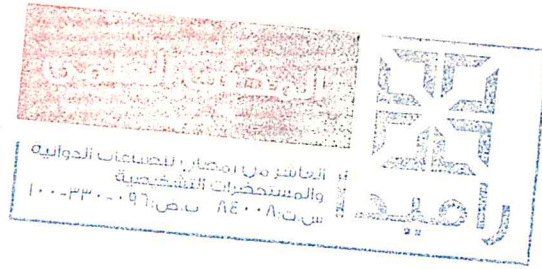 راميد
العاشر من رمضان للصناعات الدوائية
والمستحضرات التشخيصية
س.ت: ٨٤٠٠٨ ب.ض: ٠٩٦-٣٣٠-١٠٠